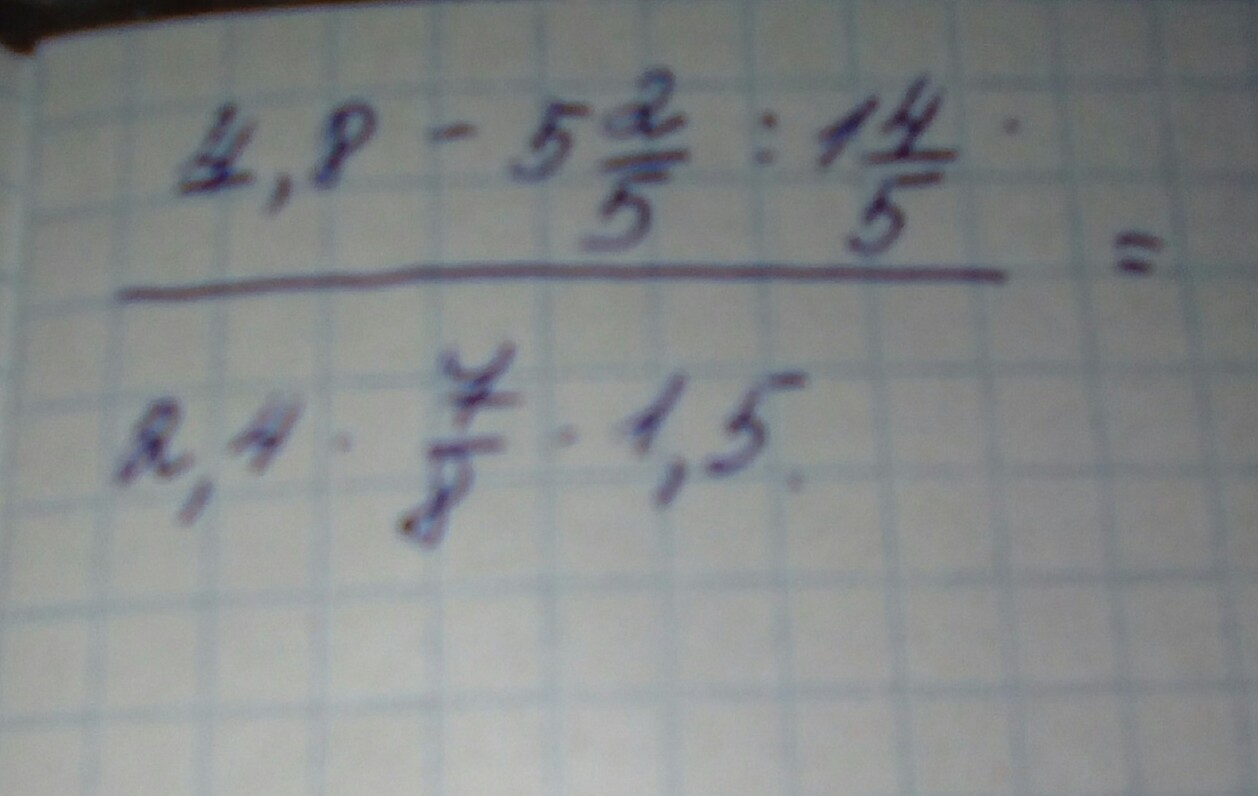 4,8 - 5 2/5 : 1 4/5 =
2,4 · 7/8 · 1,5